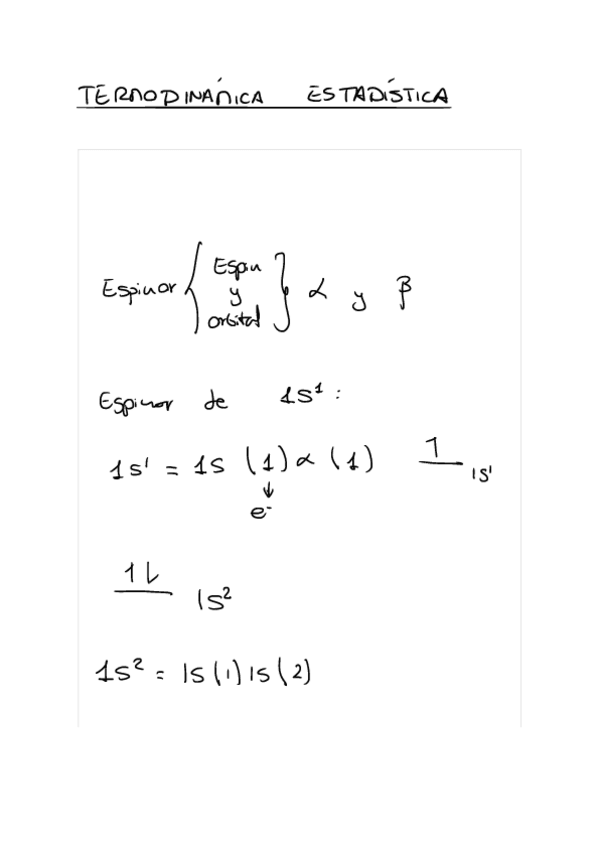 TERMODINÁMICA ESTADÍSTICA
Espinor { Espin y orbital } α y β
Espinor de 1s¹ :
1s¹ = 1s (1) α (1) 1 1s¹
↓
e⁻
1 L 1s²
1s² = 1s(1) 1s(2)